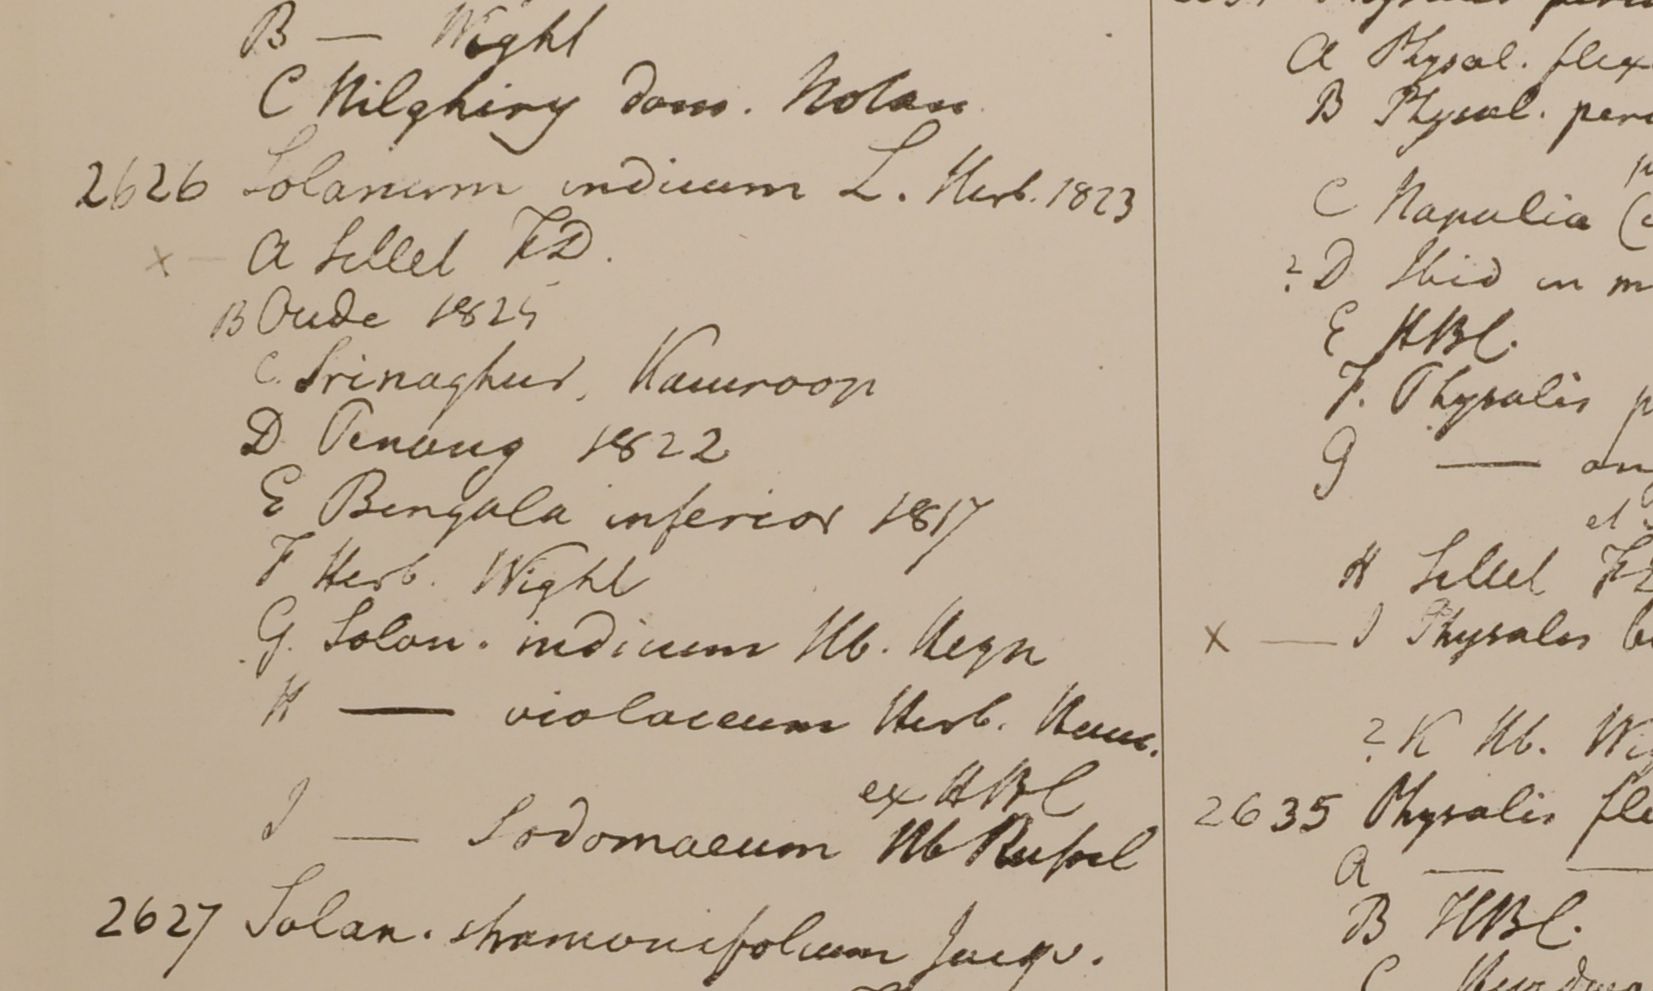 B — Wight
C Nilghiry dom. Notan
2626 Solanum indicum L. Herb. 1823
x — A Sillet F.D.
B Oude 1825
C. Srinaghur, Kamroop
D Penang 1822
E Bengala inferior 1817
F Herb. Wight
G. Solan. indicum Hb. Heyn
H — violaceum Herb. Ham.
I — Sodomaeum ex HBC Hb Russel
2627 Solan. stramonifolium Jacqu.
A Physal. flex
B Physal. peru
C Napalia
? D Ibid in m
E HBC.
F. Physalis p
G — an
et
H Sillet F
x — I Physalis
? K Hb. Wi
2635 Physalis fle
A — —
B HBC.
C